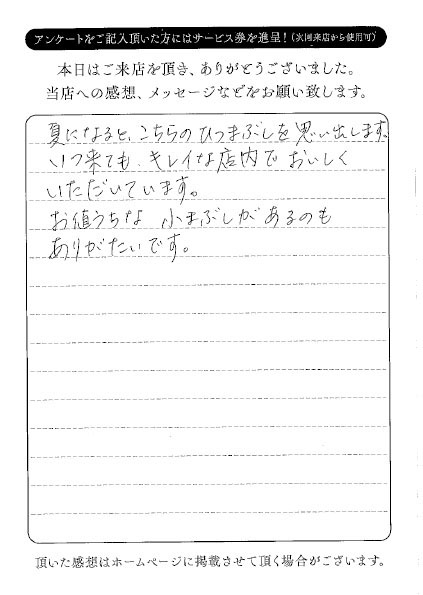 アンケートをご記入頂いた方にはサービス券を進呈!(次回来店から使用可)
本日はご来店を頂き、ありがとうございました。
当店への感想、メッセージなどをお願い致します。
夏になると、こちらのひつまぶしを思い出します。
いつ来ても、キレイな店内でおいしく
いただいています。
お値うちな 小まぶしがあるのも
ありがたいです。
頂いた感想はホームページに掲載させて頂く場合がございます。